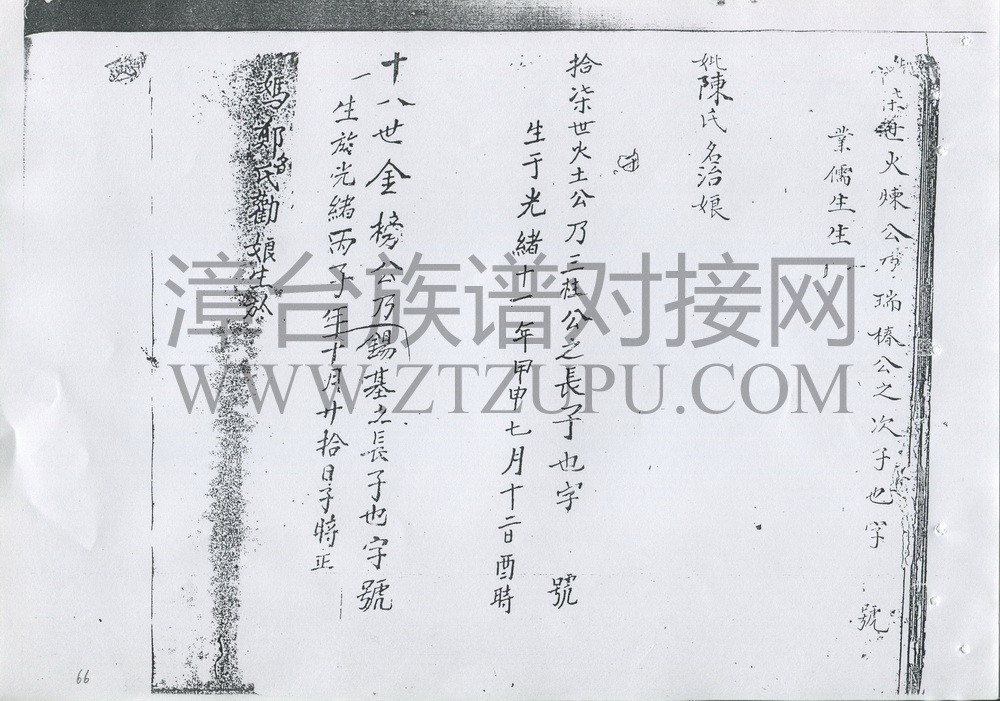 柒世火煉公乃瑞椿公之次子也字 號
業儒生生
妣陳氏名治娘
拾柒世火土公乃三柱公之長子也字 號
生于光緒十一年甲申七月十二日酉時
十八世金榜公乃錫基之長子也字號
一生於光緒丙子年十月廿拾日子時正
媽鄭氏勸娘生於
漳台族谱对接网
WWW.ZTZUPU.COM
66